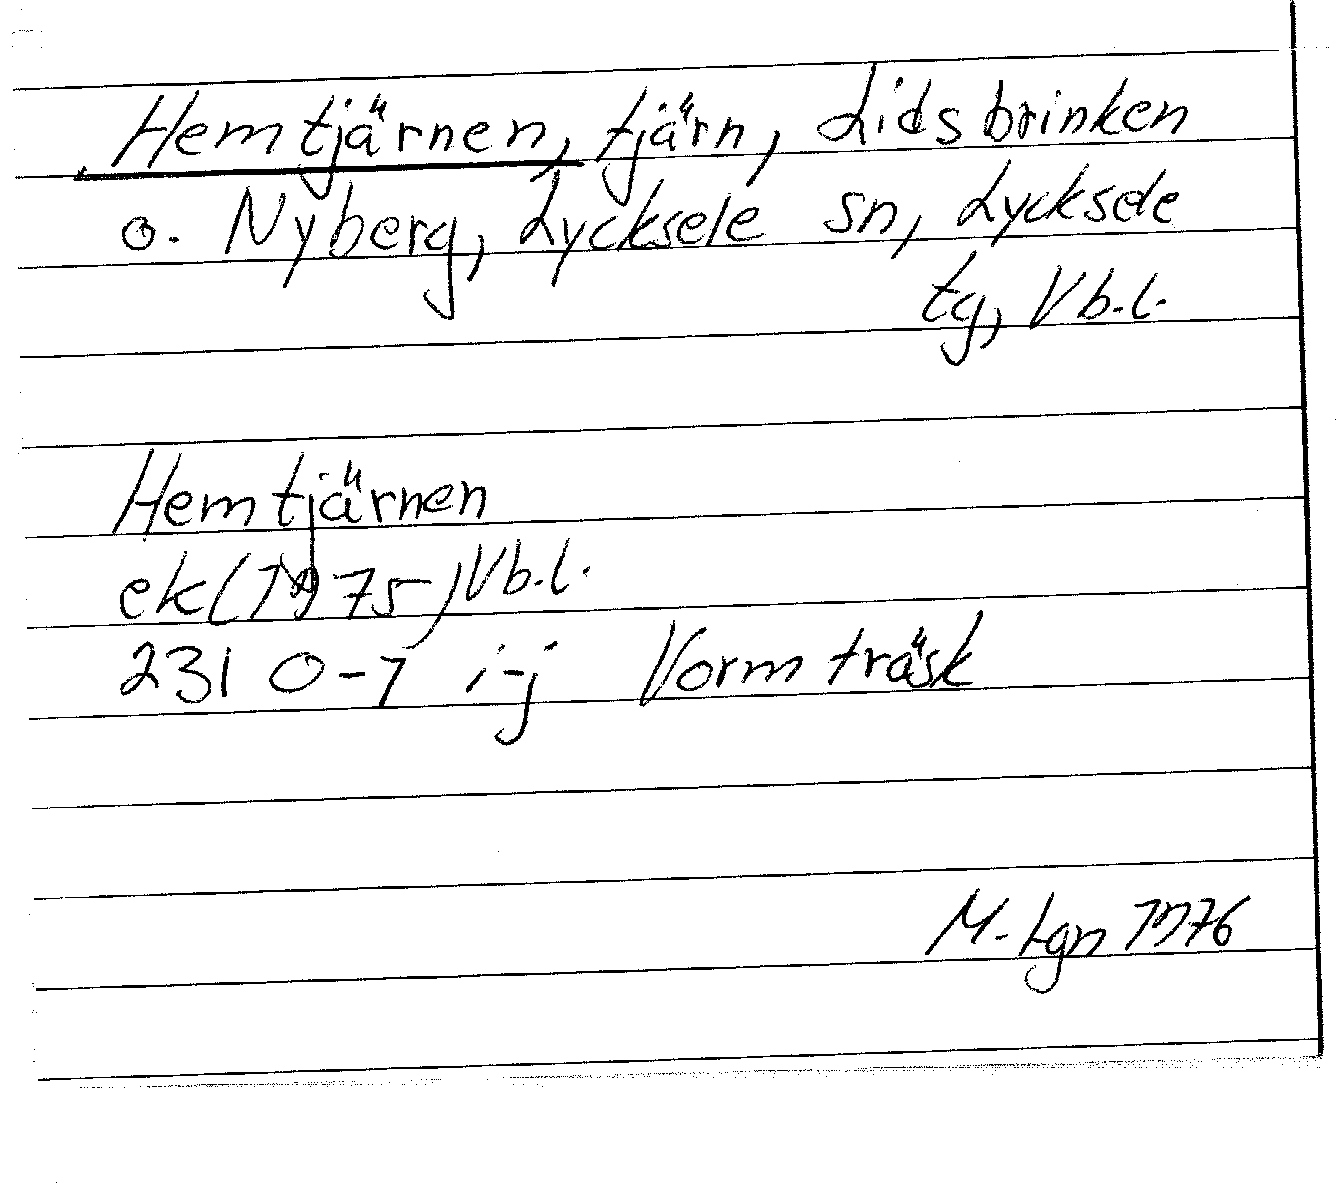 Hemtjärnen, tjärn, Lidsbrinken
o. Nyberg, Lycksele sn, Lycksele
tg, Vb.l.
Hemtjärnen
ek(1975)Vb.l.
231 0-1 i-j Vormträsk
M-tgn 1976